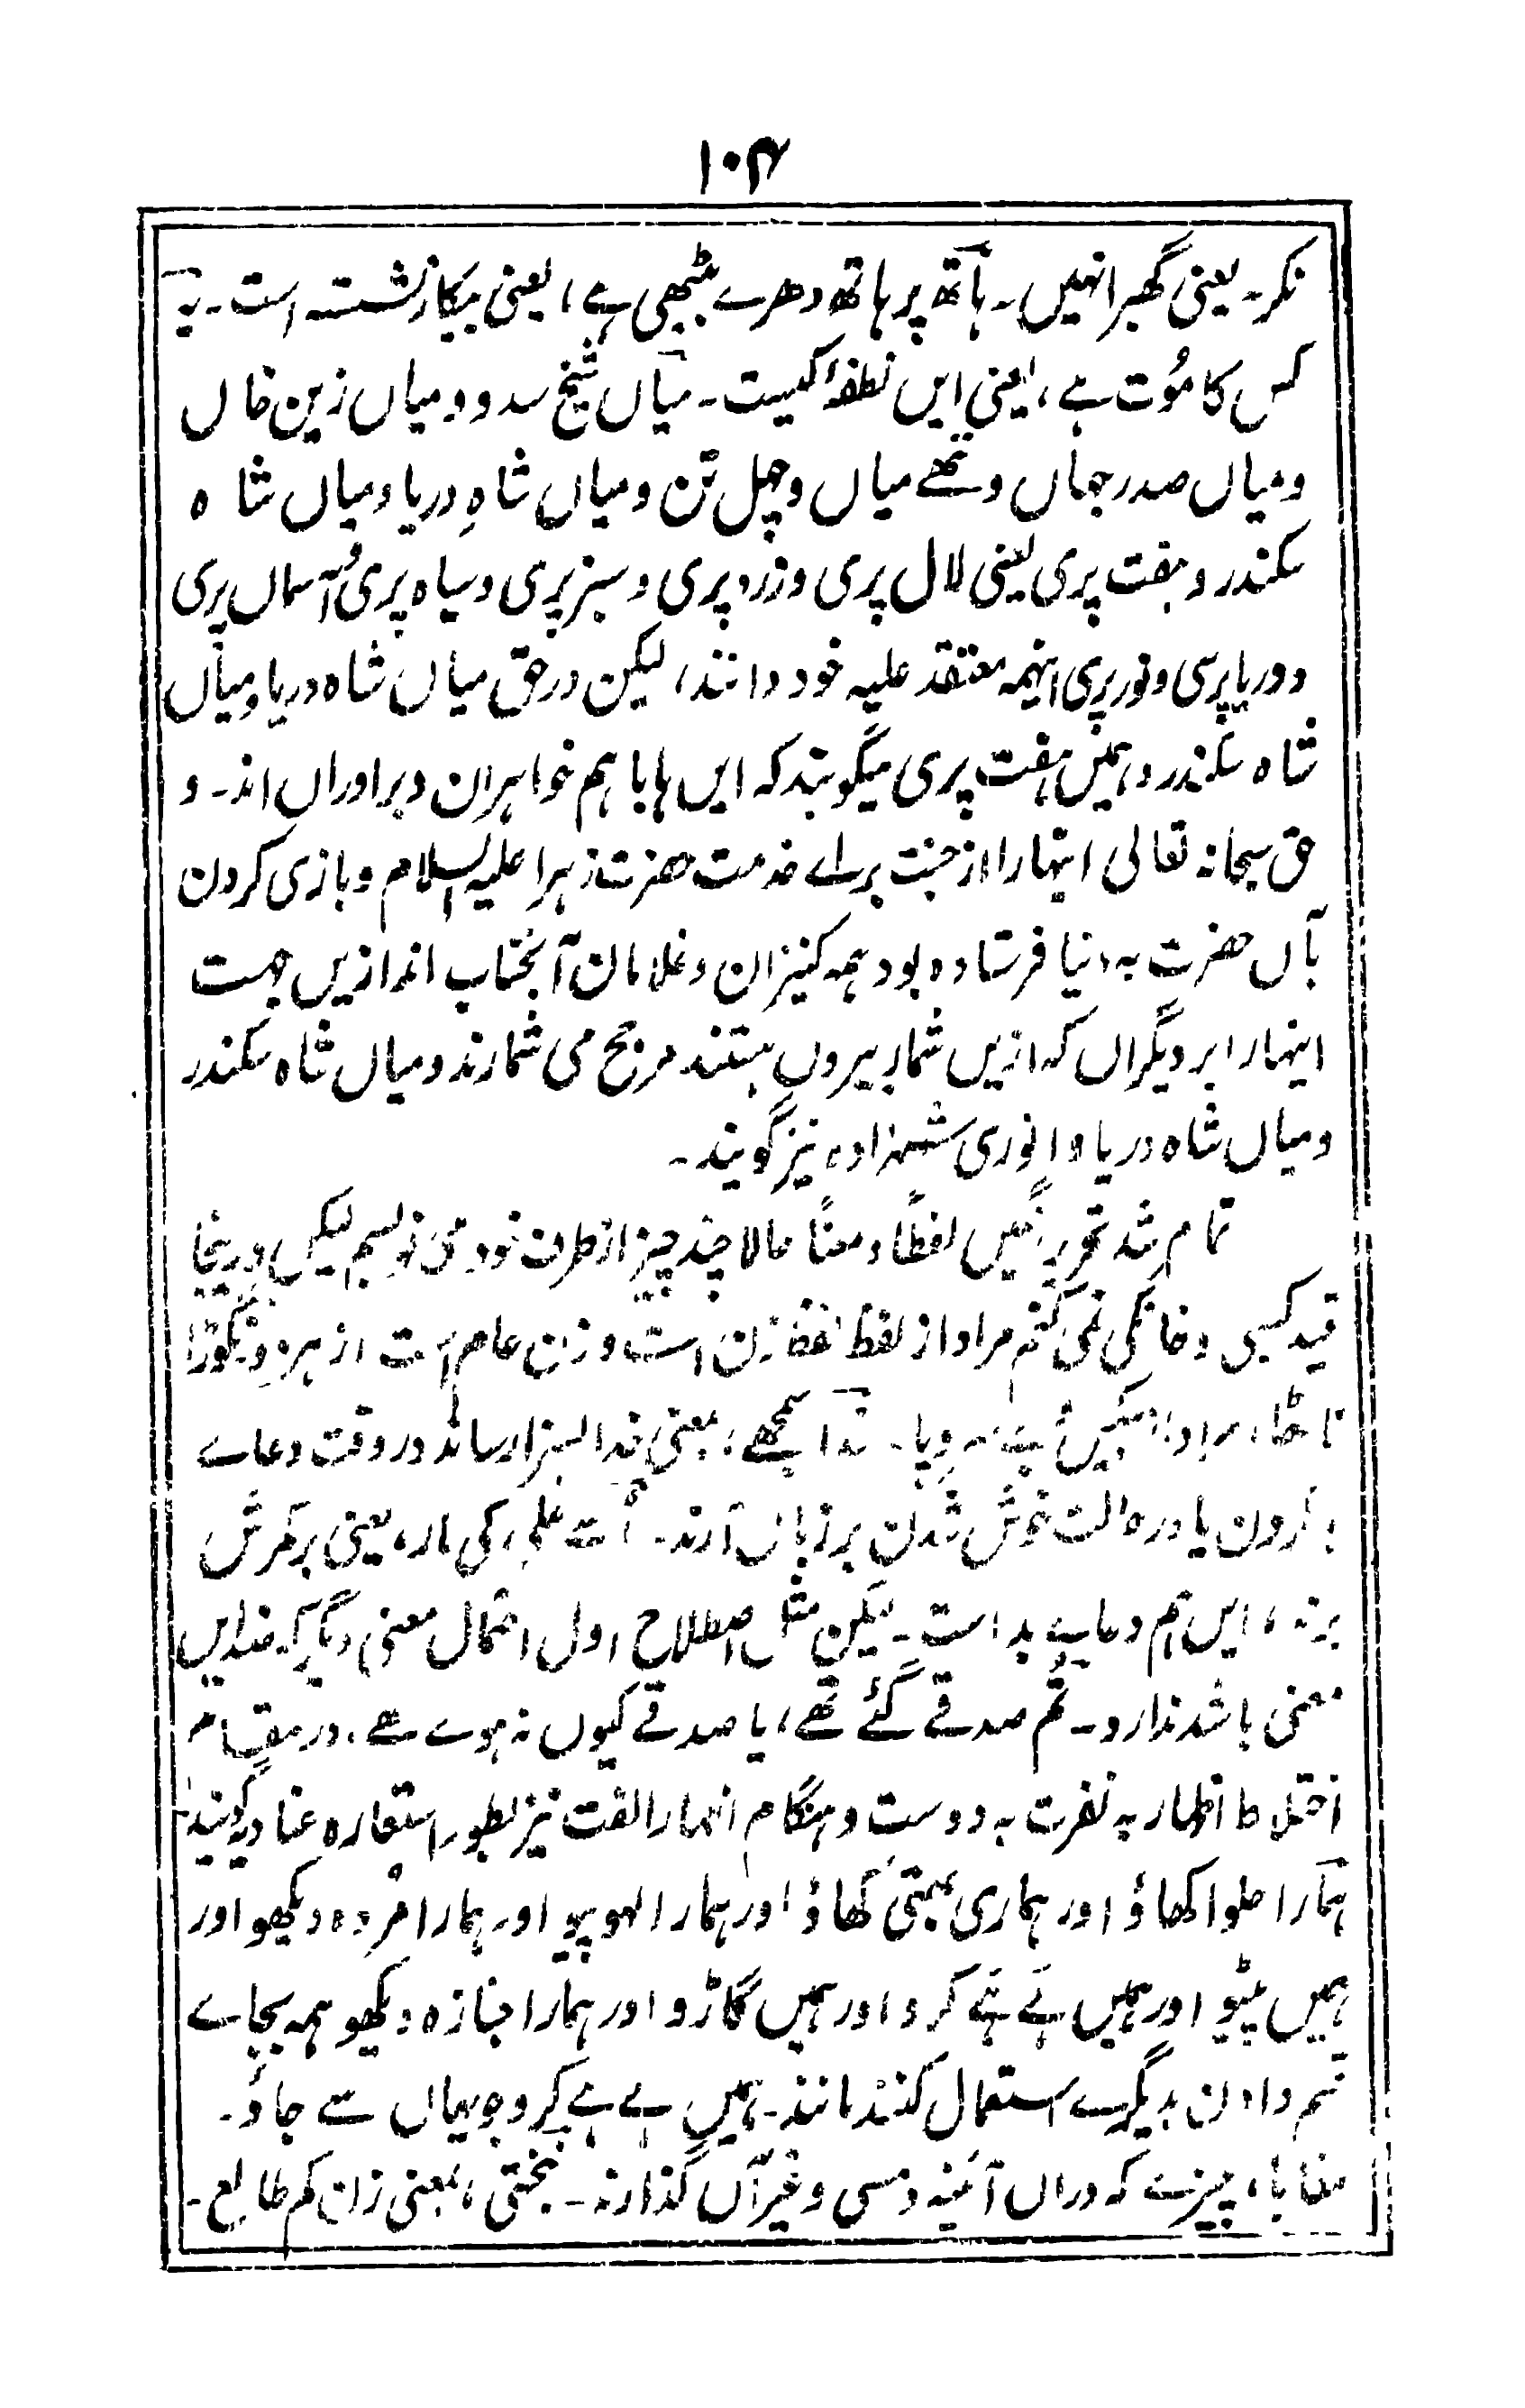 ۱۰۴
نکر۔ یعنی گھبرا نہیں۔ ہاتھ پر ہاتھ دھرے بیٹھی ہے، یعنی بیکار نشستہ است۔ یہ
کس کا مُوت ہے، یعنی ایں نطفۂ کیست۔ میاں شیخ سدو و میاں زین خاں
و میاں صدر جہاں و ننھے میاں و چہل تن و میاں شاہِ دریا و میاں شاہ
سکندر و ہفت پری یعنی لال پری و زرد پری و سبز پری و سیاہ پری و آسماں پری
و دریا پری و نور پری اینہمہ معتقد علیہ خود دانند، لیکن در حق میاں شاہ دریا و میاں
شاہ سکندر و ہمیں ہفت پری میگویند کہ ایں ہا باہم خواہران و براوراں اند۔ و
حق سبحانہ تعالی اینہا را از جنت براے خدمت حضرت زہرا علیہ السلام و بازی کردن
بآں حضرت بہ دنیا فرستادہ بود ہمہ کنیزان و غلامان آنجناب اند ازیں جہت
اینہا را بر دیگراں کہ ازیں شمار بیروں ہستند مرجح می شمارند و میاں شاہ سکندر
و میاں شاہ دریا و انوری شہزادہ نیز گویند۔
تمام شد تحریر نمیں لفظاً و معناً حالا چند چیز از طرف خود می نویسم لیکن در ینجا
قید کسبی و خانگی نمی کنم مراد از لفظ لفظ زن است و زن عام است از ہر دو نگوڑا
ناٹھا، مراد از بے سر و پا۔ خدا سمجھے، بمعنی خدا بسزا رساند در وقت دعاے
بد کردن یا در حالت خوش شدن بر زبان آرند۔ اُسے علی کی مار، یعنی بر کمرش
بزند، ایں ہم دعاے بد است۔ لیکن مثل اصطلاح اول احتمال معنی دیگر کہ ضد ایں
معنی باشد ندارد۔ تم صدقے گئے تھے، یا صدقے کیوں نہ ہوے تھے، در مقام
اختلاط اظہار بہ نفرت بہ دوست و ہنگام اظہار الفت نیز بطور استعارہ عنادیہ گویند۔
ہمارا حلوا کھاؤ اور ہماری بھتی کھاؤ اور ہمارا لہو پیو اور ہمارا مُردہ دیکھو اور
ہمیں پیٹو اور ہمیں ہَے ہَے کرو اور ہمیں گاڑو اور ہمارا جنازہ دیکھو ہمہ بجاے
قسم دادن بدیگرے استعمال کنند مانند۔ ہمیں ہے ہے کرو جو یہاں سے جاؤ۔
چیزے کہ دراں آئینہ و مسی و غیر آں گذارند۔ بختی، بمعنی زن کم طالع۔